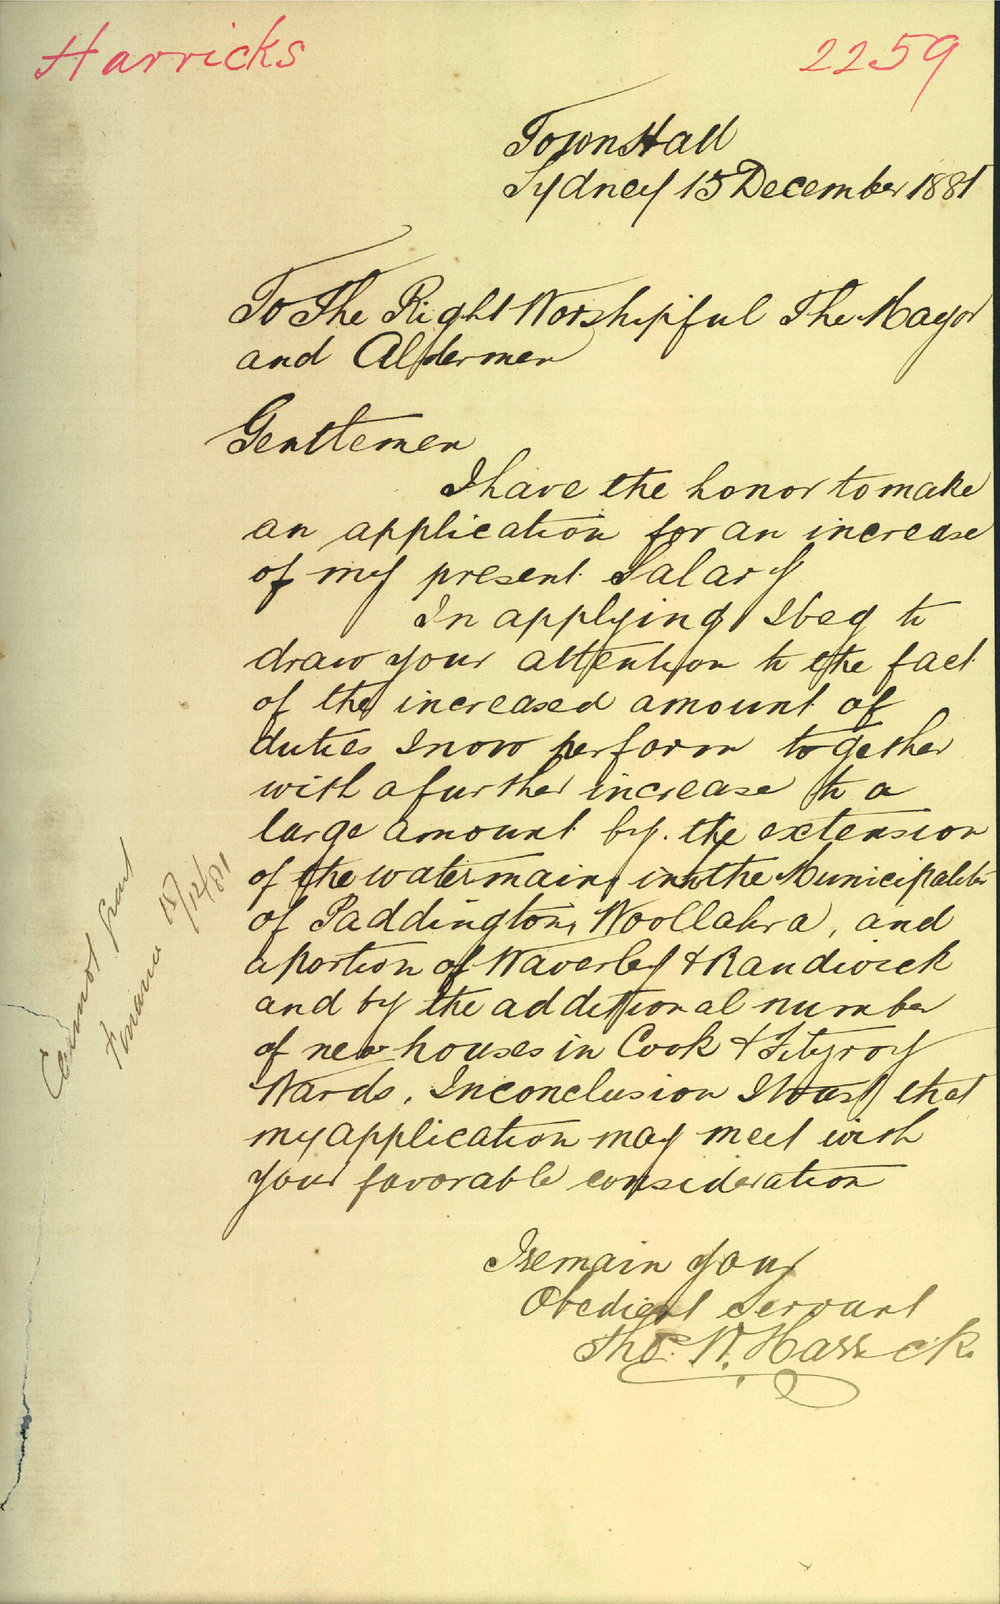 Harricks
2259
Town Hall
Sydney 15 December 1881
To The Right Worshipful The Mayor
and Aldermen
Gentlemen
I have the honor to make
an application for an increase
of my present Salary
In applying I beg to
draw your attention to the fact
of the increased amount of
duties I now perform together
with a further increase to a
large amount by. the extension
of the water mains into the Municipalities
of Paddington, Woollahra, and
a portion of Waverley & Randwick
and by the additional number
of new houses in Cook & Fitzroy
Wards. In conclusion I trust that
my application may meet with
your favorable consideration
I remain your
Obedient Servant
Thos. W. Harrick
Cannot grant
Finance 12/81